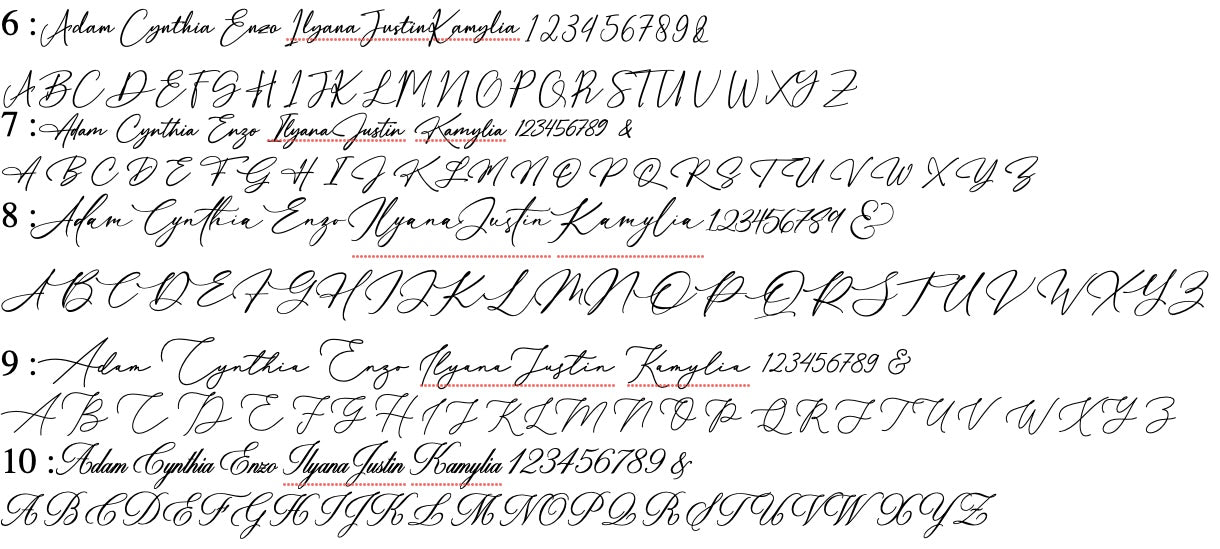 6 : Adam Cynthia Enzo Ilyana Justin Kamylia 1234567898 &
A B C D E F G H I J K L M N O P Q R S T U V W X Y Z
7 : Adam Cynthia Enzo Ilyana Justin Kamylia 123456789 &
A B C D E F G H I J K L M N O P Q R S T U V W X Y Z
8 : Adam Cynthia Enzo Ilyana Justin Kamylia 123456789 &
A B C D E F G H I J K L M N O P Q R S T U V W X Y Z
9 : Adam Cynthia Enzo Ilyana Justin Kamylia 123456789 &
A B C D E F G H I J K L M N O P Q R S T U V W X Y Z
10 : Adam Cynthia Enzo Ilyana Justin Kamylia 123456789 &
A B C D E F G H I J K L M N O P Q R S T U V W X Y Z